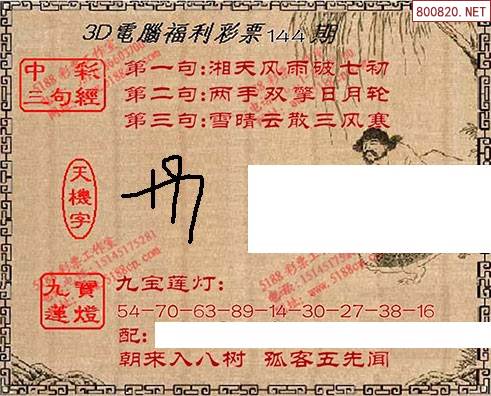 800820.NET
3D電腦福利彩票144期
中彩
三句經
第一句:湘天风雨破七初
第二句:两手双擎日月轮
第三句:雪晴云散三风寒
天機字
九寶
蓮燈
九宝莲灯:
54-70-63-89-14-30-27-38-16
配:
朝来入八树 孤客五先闻